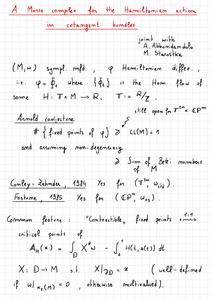 A Morse complex for the Hamiltonian action
in cotangent bundles
joint with
A. Abbondandolo
M. Starostka
(M, ω) sympl. mfld., φ Hamiltonian diffeo.,
i.e. φ = Φ₁ where {Φₜ} is the Ham. flow of
some H: T × M → R, T := R/Z.
still open for T²ᵐ × CPᵐ
Arnold conjecture
# { fixed points of φ } ≥ CL(M) + 1
and assuming non-degeneracy
≥ Sum of Betti numbers
of M
Conley-Zehnder, 1984 Yes for (T²ⁿ, ω_std).
Fortune, 1985 Yes for (CPⁿ, ω_FS).
Common feature: "Contractible" fixed points ⟷ 1:1
critical points of
A_H(x) = ∫_D X*ω - ∫₀¹ H(t, x(t)) dt
X: D → M s.t. X|_∂D = x (well-defined
if ω|π₂(M) = 0, otherwise multivalued).